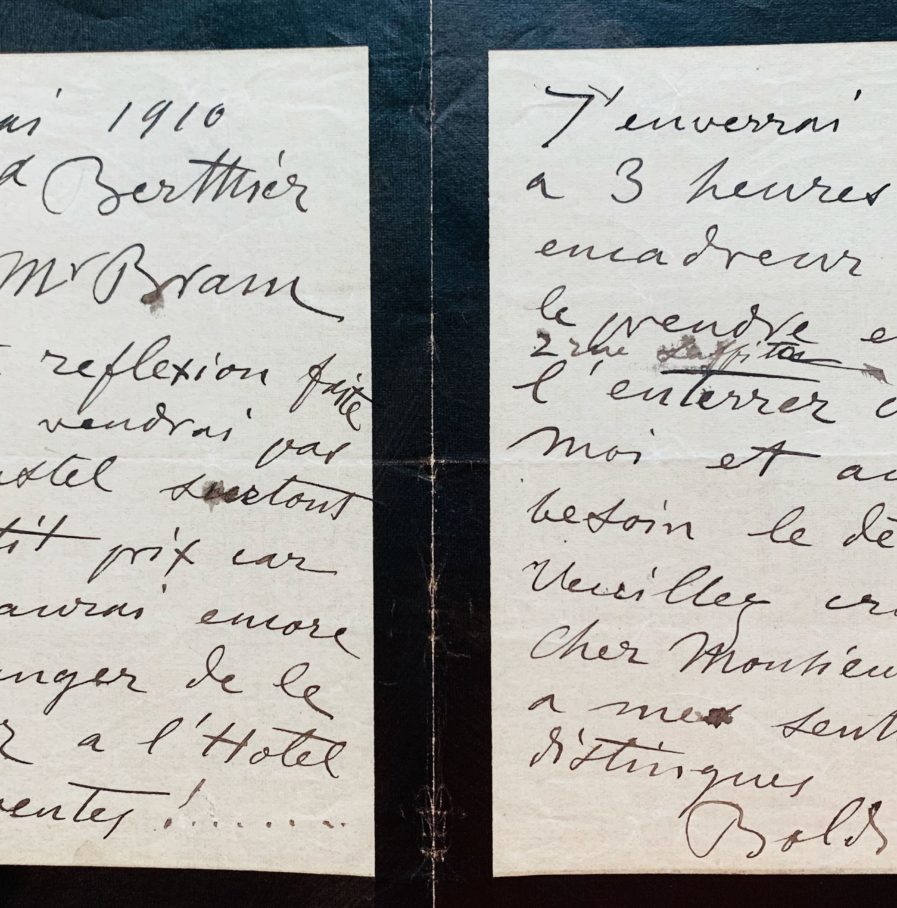 ai 1910
d Berthier
Mr Bram
reflexion faite
vendrai pas
astel surtout
tit prix car
aurai encore
anger de le
r a l'Hotel
ventes !.......
J'enverrai
a 3 heures
encadreur
le prendre e
2 rue Laffitte
l'enterrer c
moi et au
besoin le dé
Veuillez cro
Cher Monsieu
a mes sent
distingues
Boldi